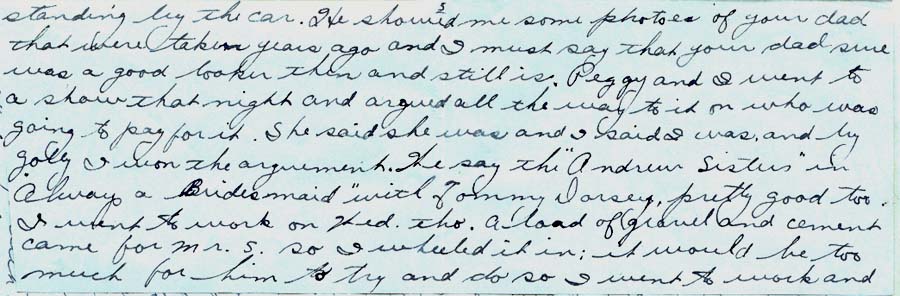 standing by the car. He showed me some photoes of your dad
that were taken years ago and I must say that your dad sure
was a good looker then and still is. Peggy and I went to
a show that night and argued all the way to it on who was
going to pay for it. She said she was and I said I was, and by
golly I won the arguement. We say th "Andrew Sisters" in
"Always a Bridesmaid" with Tommy Dorsey, pretty good too.
I went to work on Wed. tho. A load of gravel and cement
came for Mr. S. so I wheeled it in; it would be too
much for him to try and do so I went to work and